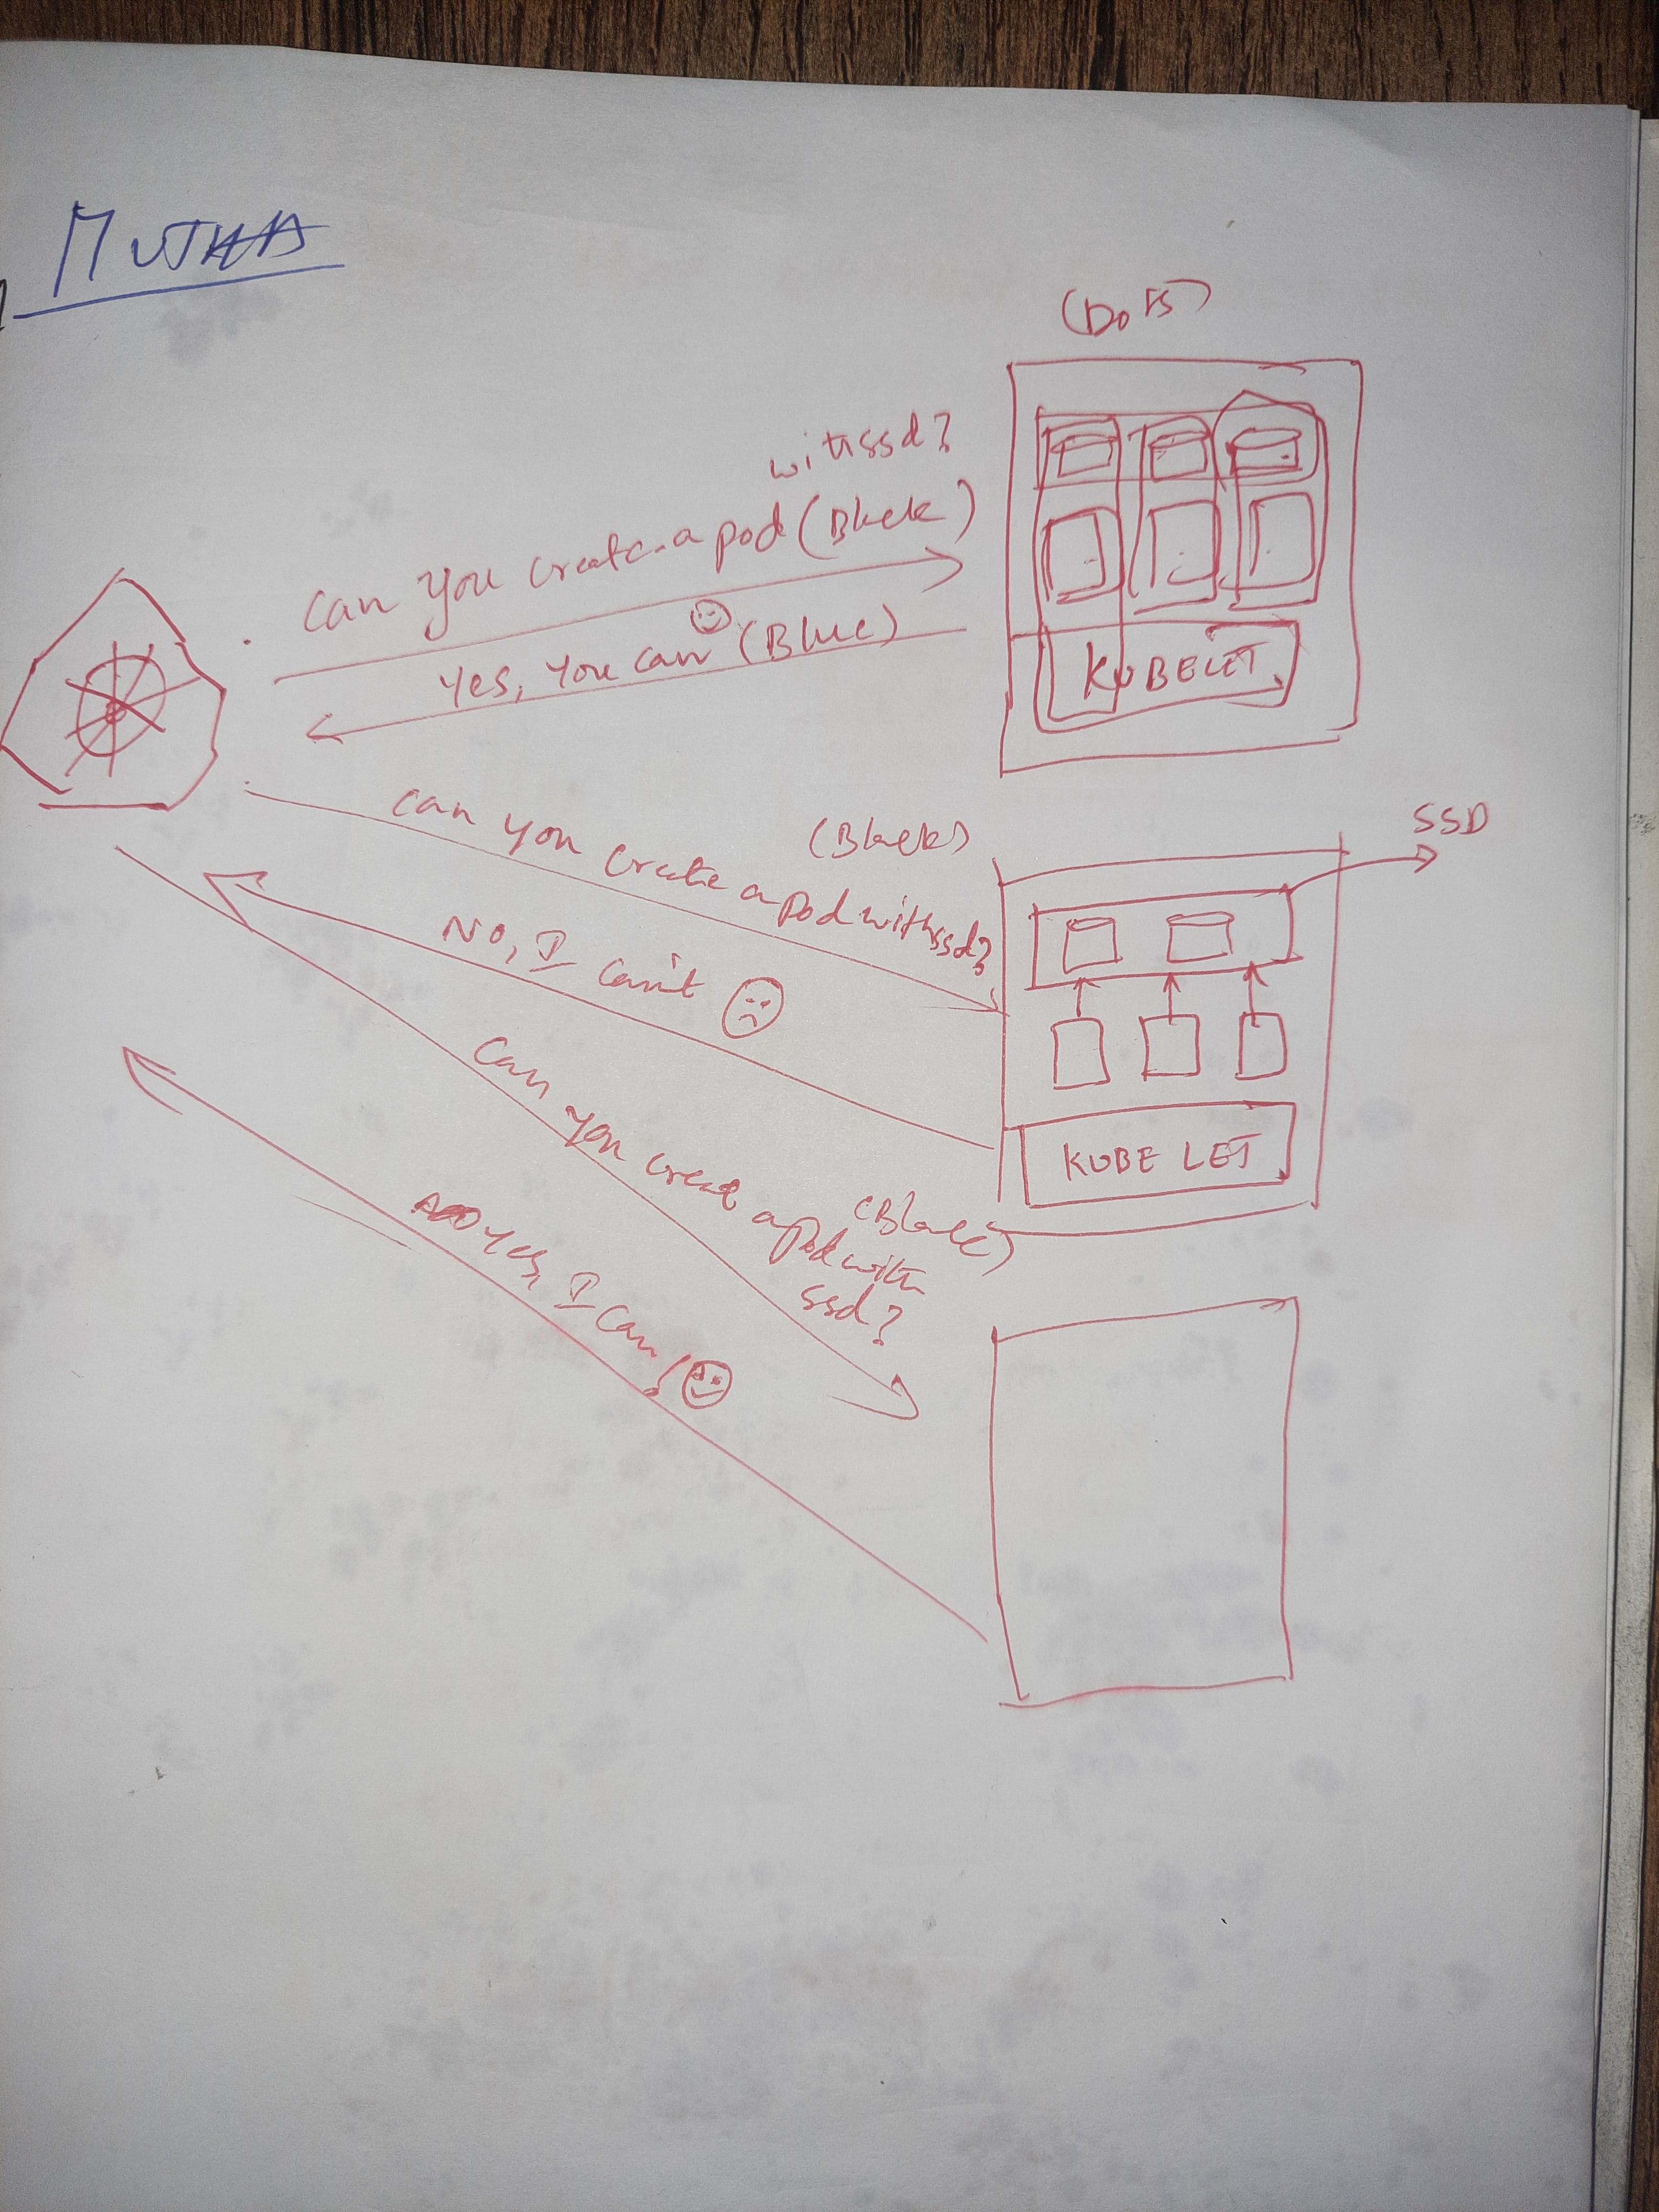 MUTHA
with ssd?
can you create a pod (Black)
Yes, you can (Blue)
KUBELET
SSD
(Black)
can you create a pod with ssd?
No, I can't
KUBE LET
(Black)
Can you create a pod with
ssd?
Yes, I can!